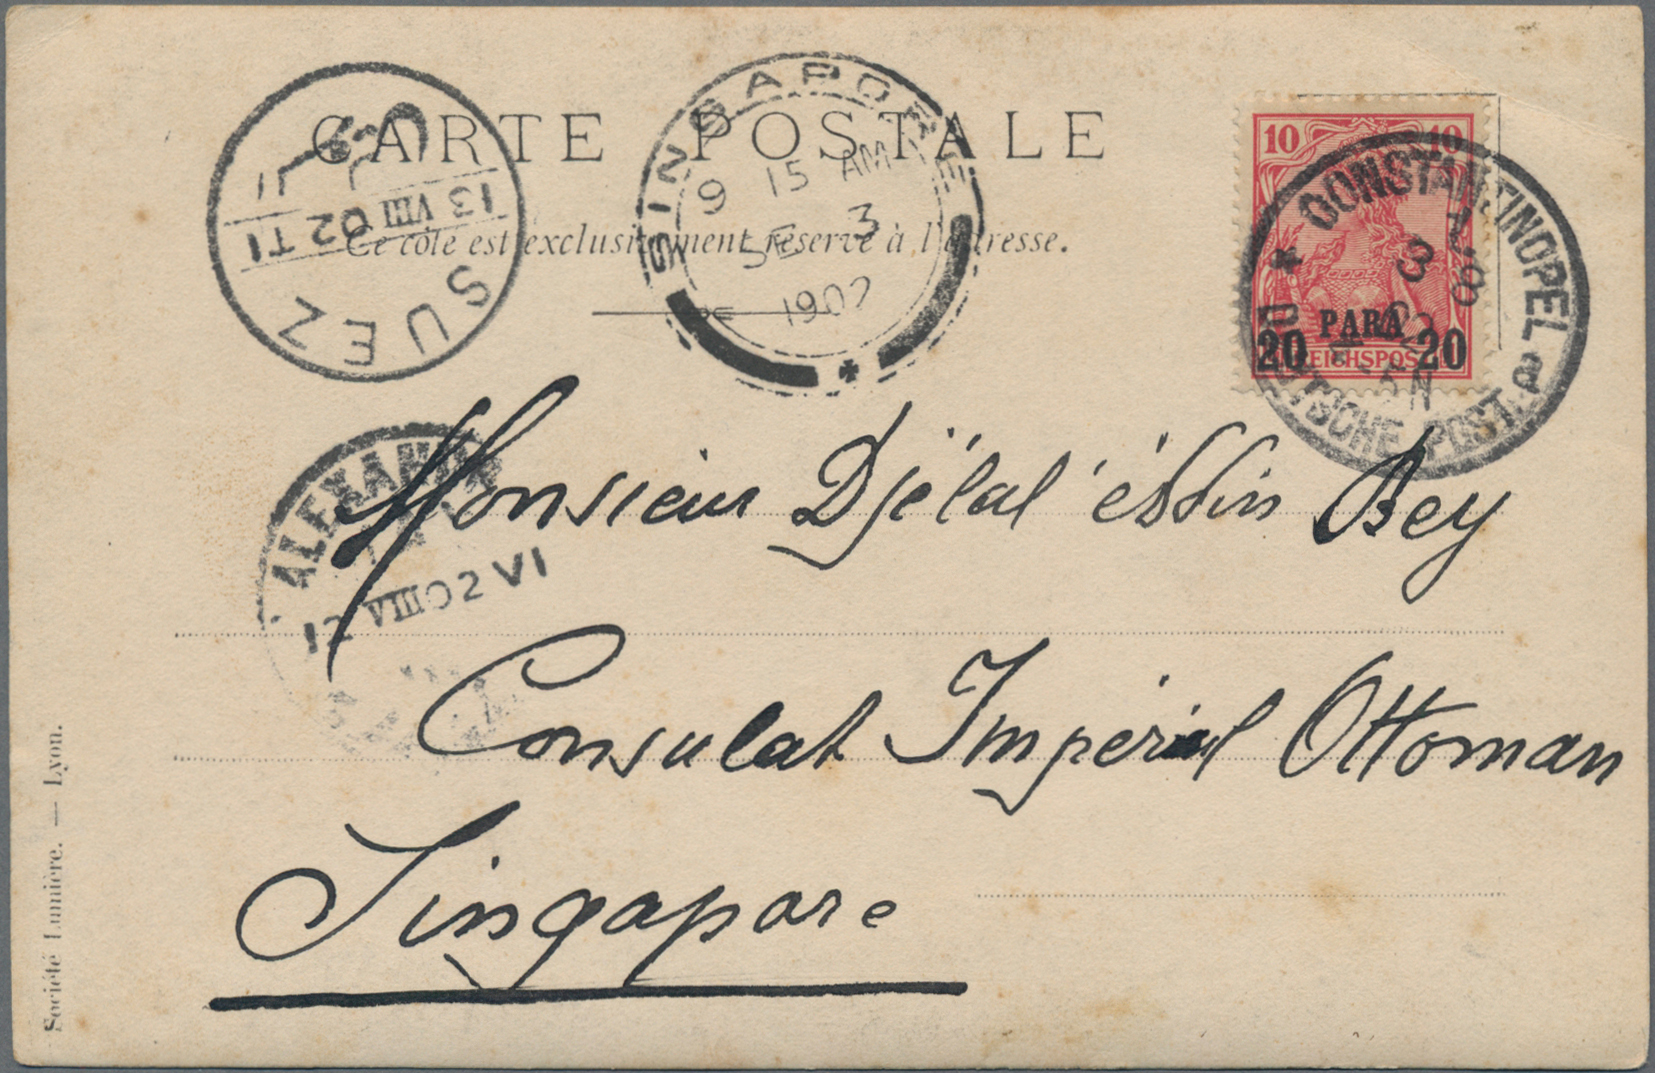 CARTE POSTALE
Ce côté est exclusivement réservé à l'adresse.
SUEZ
13 VIII 02 T I
SINGAPORE
9 15 AM
SE 3
1902
10 10
20 PARA 20
REICHSPOST
CONSTANTINOPEL
3 8
DEUTSCHE POST. a
ALEXAND
12 VIII 02 VI
Monsieur Djélal éddin Bey
Consulat Impérial Ottoman
Singapore
Société Lumière. — Lyon.